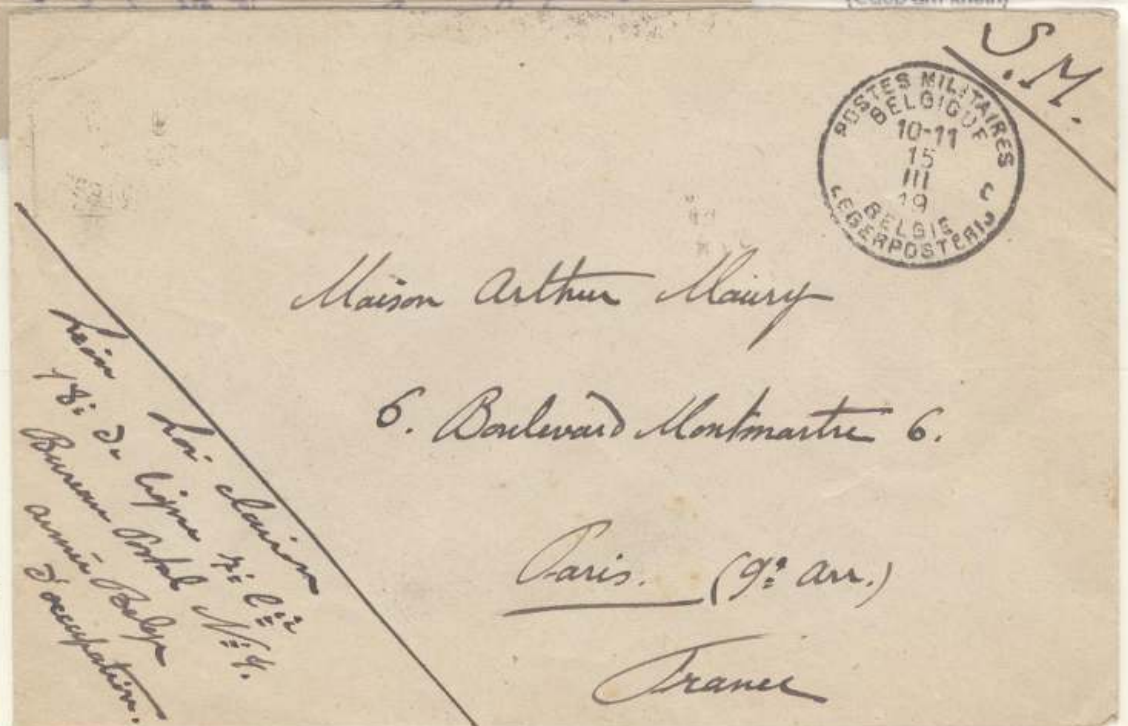 S.M.
POSTES MILITAIRES
BELGIQUE
10-11
15
III
19
BELGIE
LEGERPOSTERIJ
Maison Arthur Maury
6. Boulevard Montmartre 6.
Paris. (9e Arr.)
France
clairon
18e de ligne 7e Cie
Bureau Postal No 4.
armée Belge
d'occupation.